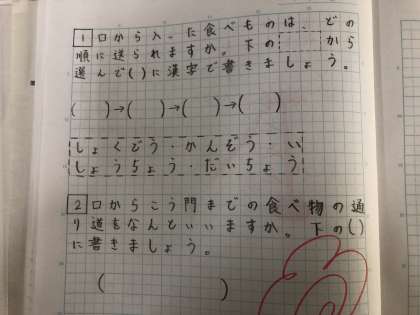 1 口から入った食べものは、どの
順に送られますか。下の□から
選んで( )に漢字で書きましょう。
( )→( )→( )→( )
しょくどう・かんぞう・い
しょうちょう・だいちょう
2 口からこう門までの食べ物の通
り道をなんといいますか。下の( )
に書きましょう。
( )